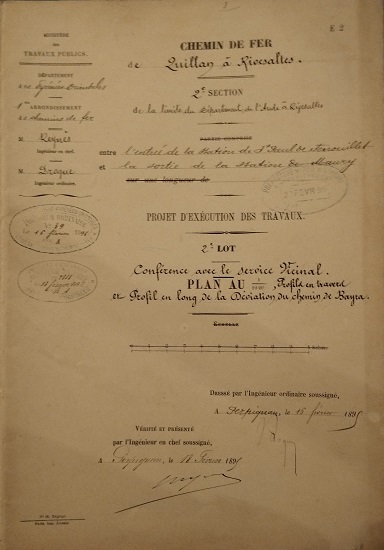 E 2
MINISTÈRE
des
TRAVAUX PUBLICS.
DÉPARTEMENT
des Pyrénées Orientales
ARRONDISSEMENT
de chemins de fer
M
Ingénieur en chef.
M
Ingénieur ordinaire.
CHEMIN DE FER
de Quillan à Rivesaltes.
2e SECTION
de la limite du Département de l'Aude à Rivesaltes
entre l'entrée de la station de St Paul de Fenouillet
et la sortie de la station de Maury
sur une longueur de
PROJET D'EXÉCUTION DES TRAVAUX.
2e LOT
Conférence avec le service Vicinal.
PLAN AU , Profils en travers
et Profil en long de la Déviation du chemin de Bayra.
DRESSÉ par l'Ingénieur ordinaire soussigné,
A Perpignan, le 15 février 1895
VÉRIFIÉ ET PRÉSENTÉ
par l'Ingénieur en chef soussigné,
A Perpignan, le Février 1895